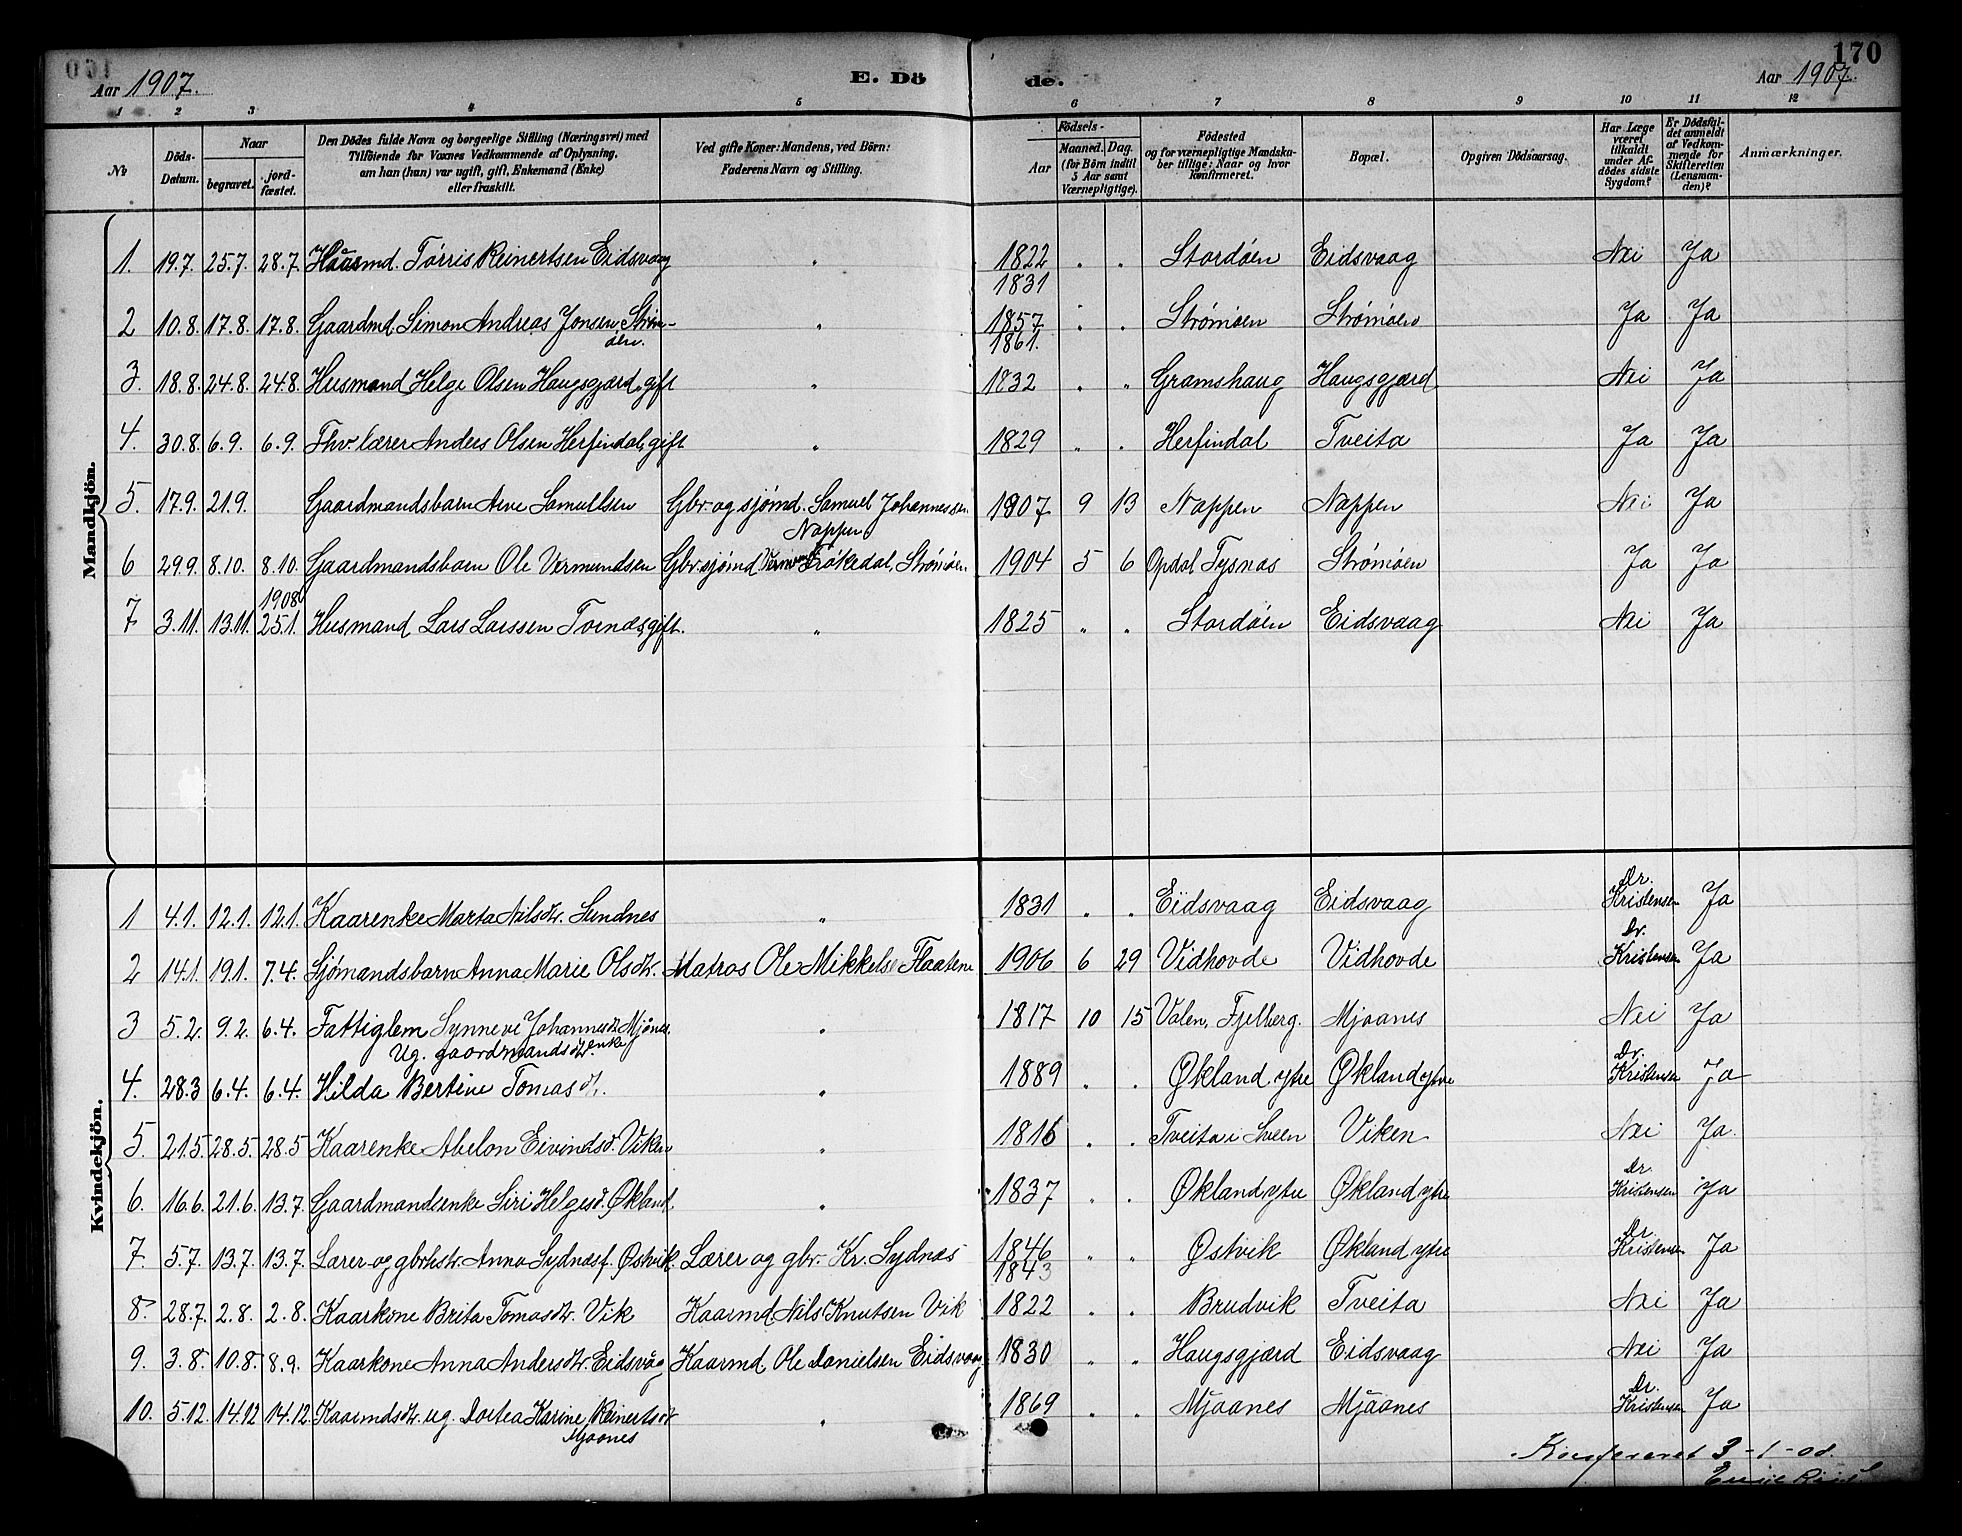 170
Aar 1907. E. Dö de. Aar 1907.
1 2 3 4 5 6 7 8 9 10 11 12
№ Döds-Datum. Naar begravet. jord-fæstet. Den Dödes fulde Navn og borgerlige Stilling (Næringsvei) med Tilföiende for Voxnes Vedkommende af Oplysning, om han (hun) var ugift, gift, Enkemand (Enke) eller fraskilt. Ved gifte Koner: Mandens, ved Börn: Faderens Navn og Stilling. Födsels- Aar Maaned. Dag. (for Börn indtil 5 Aar samt Værnepligtige). Födested og for værnepligtige Mandskaber tillige: Naar og hvor konfirmeret. Bopæl. Opgiven Dödsaarsag. Har Læge været tilkaldt under Afdödes sidste Sygdom? Er Dödsfaldet anmeldt af Vedkommende for Skifteretten (Lensmanden)? Anmærkninger.
Mandkjön.
1. 19.7. 25.7. 28.7. Tørris Reinertsen Eidsvaag " 1822 1831 " " Stordøen Eidsvaag Nei Ja
2 10.8. 17.8. 17.8. Gaardmd. Simon Andreas Jonsen Strøm-
øen. " 1857 1861. " " Strømøen Strømøen Ja Ja
3. 18.8. 24.8. 24.8. Husmand Helge Olsen Haugsgjærd, gift " 1832 " " Gramshaug Haugsgjærd Nei Ja
4. 30.8. 6.9. 6.9. Fhv. lærer Anders Olsen Herfindal, gift " 1829 " " Herfindal Tveita Ja Ja
5 17.9. 21.9. Gaardmandsbarn Arne Samuelsen Gbr. og sjømd. Samuel Johannessen
Nappen 1907 9 13 Nappen Nappen Nei Ja
6 29.9. 8.10. 8.10. Gaardmandsbarn Ole Vermundsen Gbr. sjømd Frøkedal, Strømøen 1904 5 6 Opdal Tysnæs Strømøen Ja Ja
7 3.11. 13.11. 1908 25.1. Husmand Lars Larssen Tornæs, gift. " 1825 " " Stordøen Eidsvaag Nei Ja
Kvindekjön.
1 4.1. 12.1. 12.1. Kaarenke Marta Nilsdtr. Sundnes " 1831 " " Eidsvaag Eidsvaag Dr. Kristensen Ja
2 14.1. 19.1. 7.4. Sjømandsbarn Anna Marie Olsdtr. Matros Ole Mikkelsen Flaatene 1906 6 29 Vidhovde Vidhovde Dr. Kristensen Ja
3 5.2. 9.2. 6.4. Fattiglem Synnevi Johannesdtr. Mjønes
enke " 1817 10 15 Valen, Fjelberg. Mjaanes Nei Ja
Ug. gaardmandsdtr.
4. 28.3 6.4. 6.4. Hilda Bertine Tomasdtr. " 1889 " " Økland ytre Økland ytre Dr. Kristensen Ja
5. 21.5. 28.5. 28.5 Kaarenke Abelon Eivindsd. Viken " 1816 " " Tveita i Sveen Viken Nei Ja.
6. 16.6. 21.6. 13.7. Gaardmandsenke Siri Helgesd. Økland. " 1837 " " Økland ytre Økland ytre Dr. Kristensen Ja
7. 5.7. 13.7. 13.7. Lærer og gbrhstr. Anna Sydnæs f. Østvik. Lærer og gbr. Kr. Sydnæs 1846 1843 " " Østvik Økland ytre Dr. Kristensen Ja
8. 28.7. 2.8. 2.8. Kaarkone Brita Tomasdtr. Vik Kaarmd. Nils Knutsen Vik 1822 " " Brudvik Tveita Nei Ja
9. 3.8. 10.8. 8.9. Kaarkone Anna Andersdtr. Eidsvåg Kaarmd. Ole Danielsen Eidsvaag 1830 " " Haugsgjærd Eidsvaag Nei Ja
10. 5.12. 14.12 14.12. Kaarmdsdtr. ug. Dortea Karine Reinertsdtr
Mjaanes " 1869 " " Mjaanes Mjåanes Dr. Kristensen Ja
Konfereret 3-1-08.